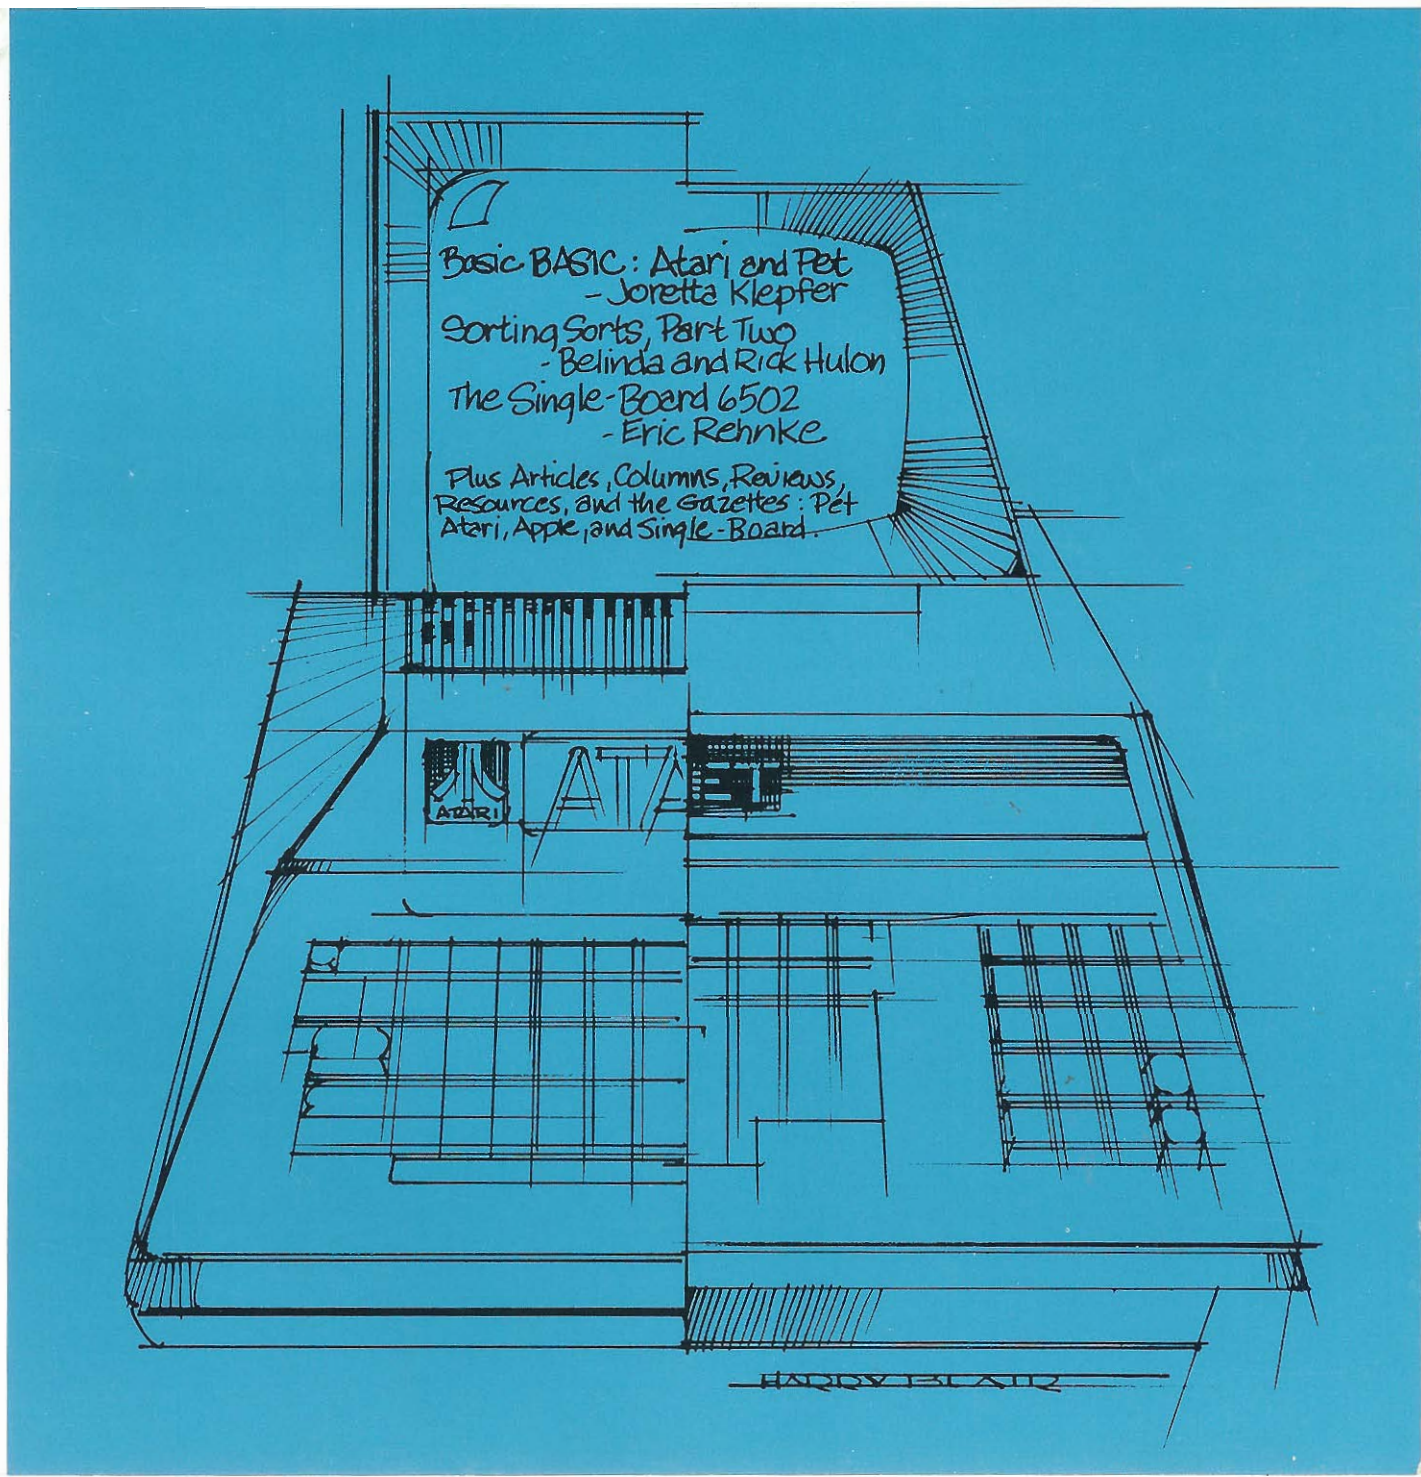 Basic BASIC: Atari and Pet
- Joretta Klepfer
Sorting Sorts, Part Two
- Belinda and Rick Hulon
The Single-Board 6502
- Eric Rehnke
Plus Articles, Columns, Reviews,
Resources, and the Gazettes: Pet
Atari, Apple, and Single-Board.
ATARI
ATA
HARRY BLAIR